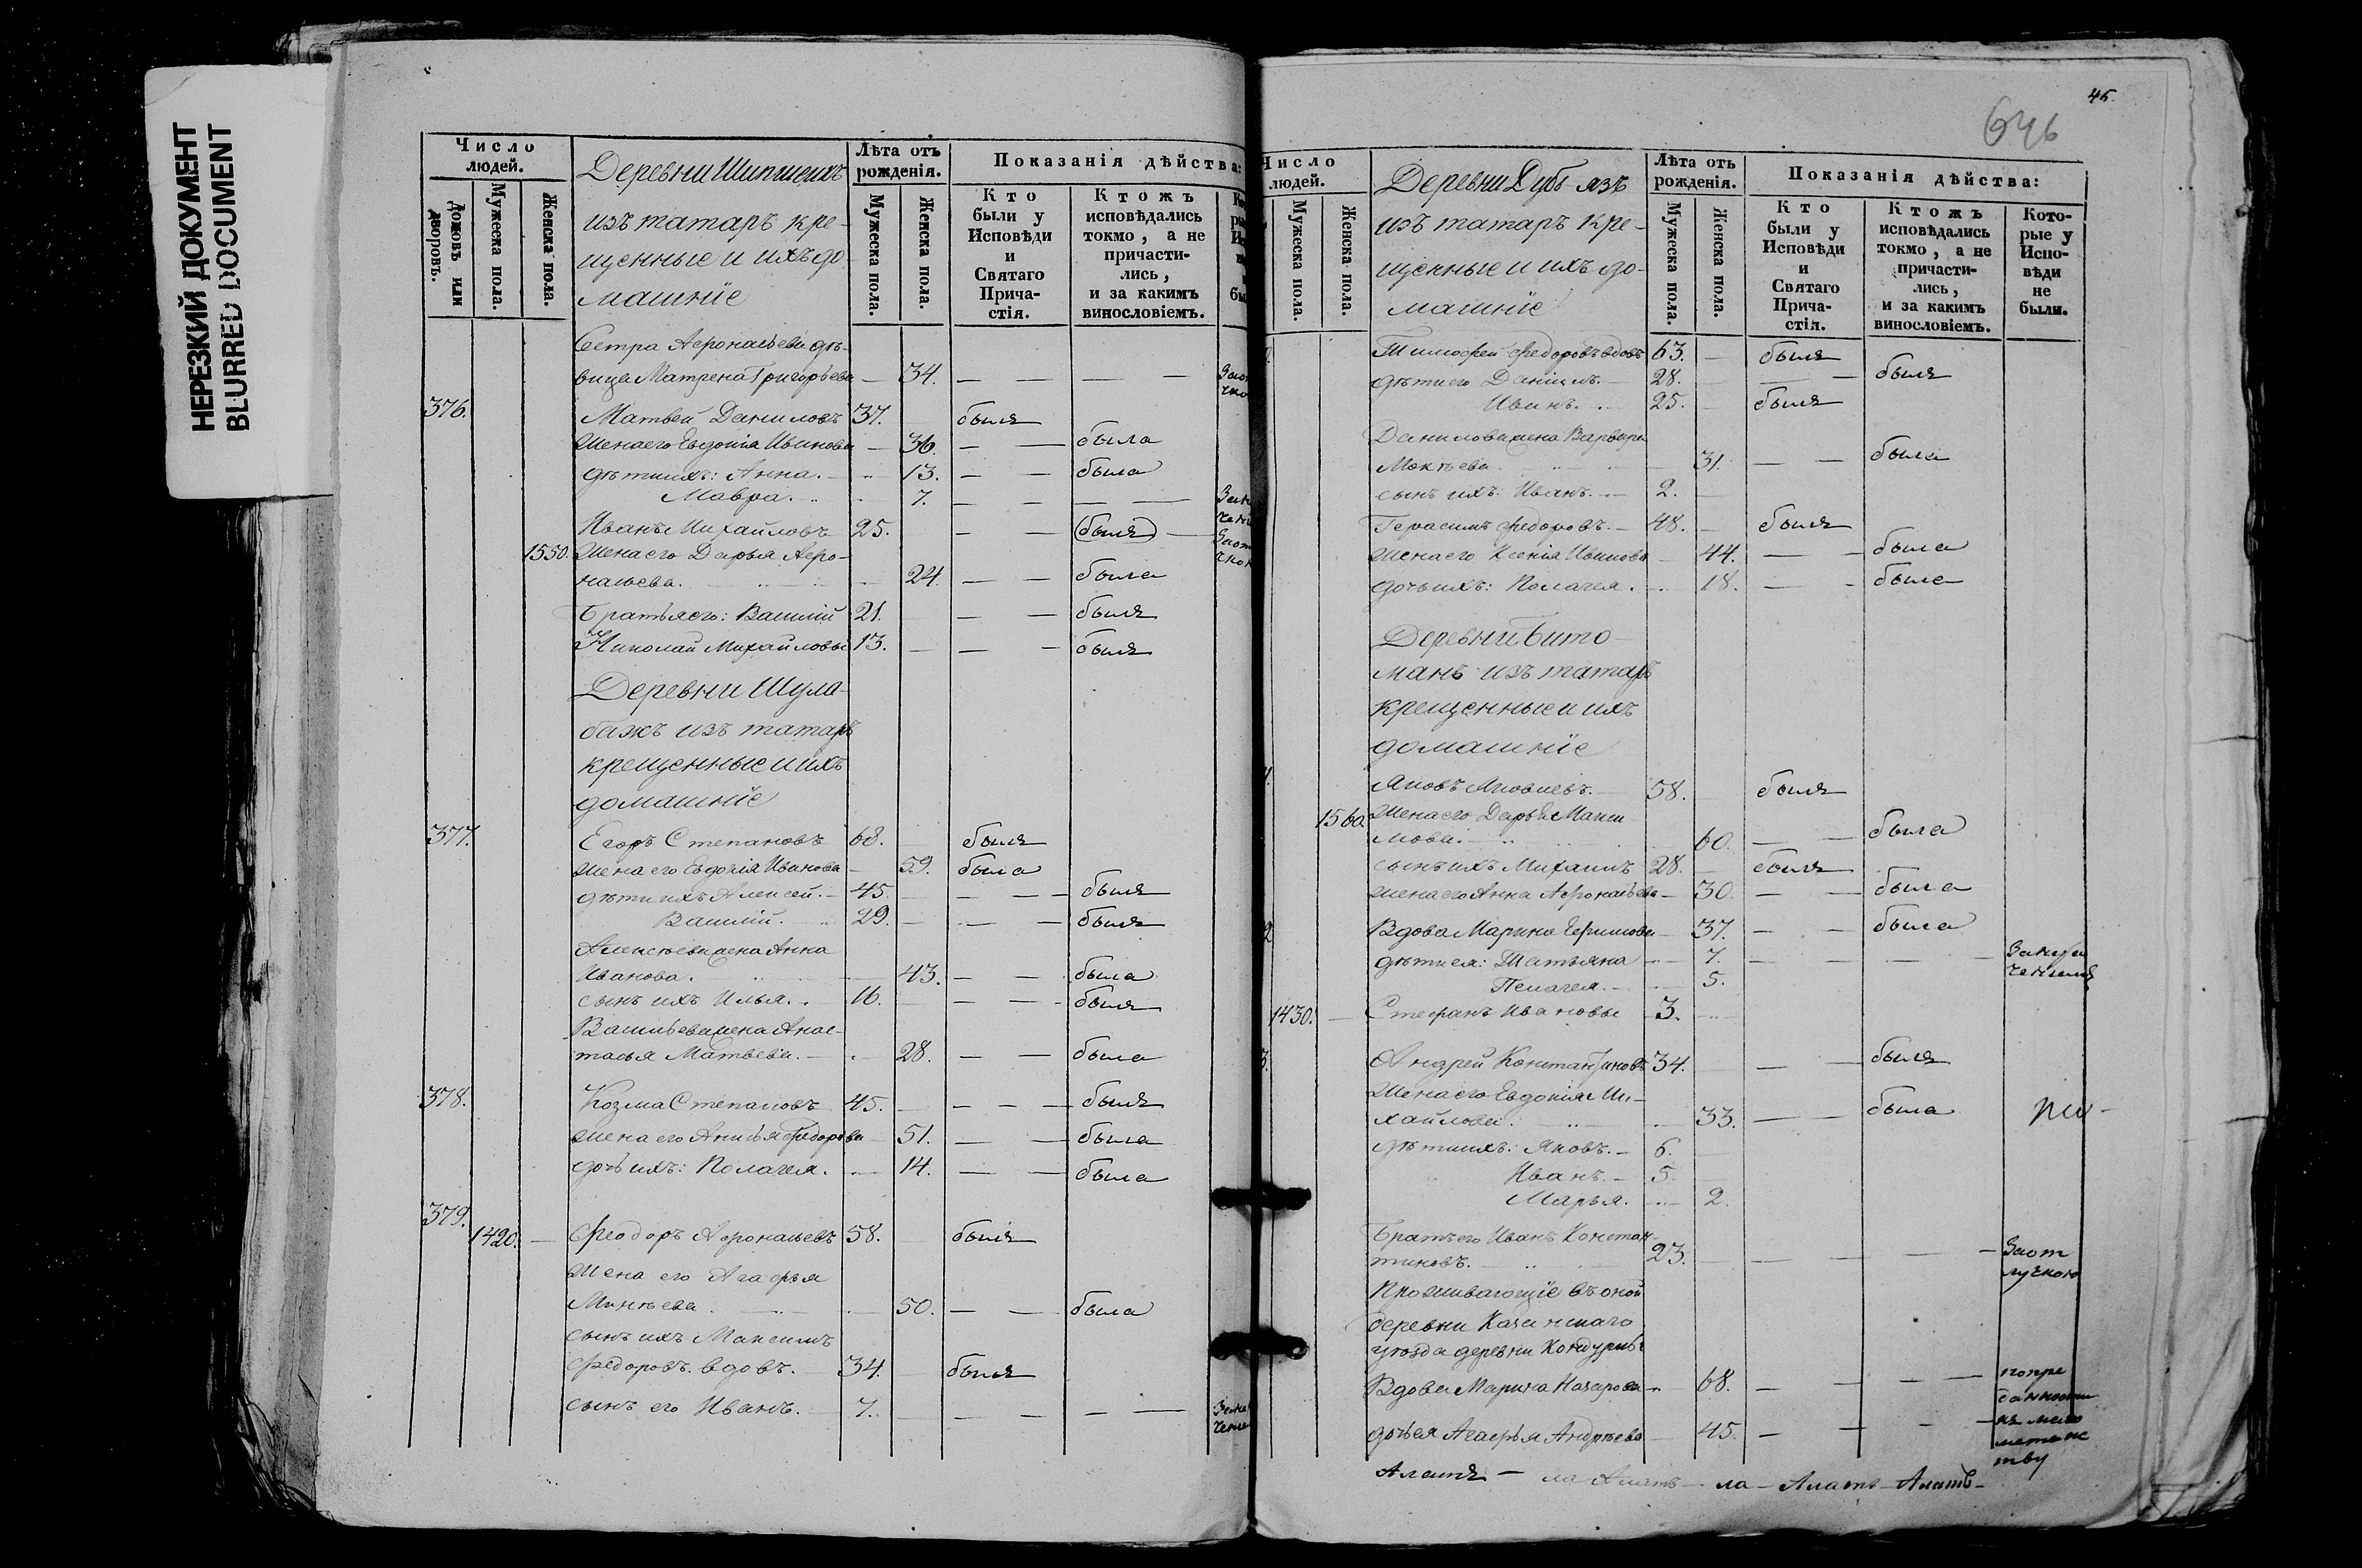 НЕРЕЗКИЙ ДОКУМЕНТ
BLURRED DOCUMENT
Число людей.
Домовъ или дворовъ.
Мужеска пола.
Женска пола.
Деревни Шипшеихъ
изъ татаръ кре-
щенные и ихъ до-
машніе
Лѣта отъ рожденія.
Мужеска пола.
Женска пола.
Показанія дѣйства:
Кто были у Исповѣди и Святаго Прича-стія.
Ктожъ исповѣдались токмо, а не причасти-лись, и за какимъ винословіемъ.
Сестра Афонасьева дѣ-
вица Матрена Григорьева — 34. — — — —
376. Матвей Даниловъ 37. былъ
Жена его Евдокія Иванова — 36. — — была
дѣти ихъ: Анна. — 13. — — была
Мавра. 7. — — — —
Иванъ Михайловъ 25. — — былъ
1550. Жена его Дарья Афо-
насьева. 24. — — была
Братья его: Василій 21. — — былъ
Николай Михайловы 13. — — былъ
Деревни Шула-
бажъ изъ татаръ
крещенные и ихъ
домашніе
377. Егоръ Степановъ 68. былъ
Жена его Евдокія Иванова 59. была
дѣти ихъ Алексей. 45. — — былъ
Василій. 29. — — былъ
Алексѣева жена Анна
Иванова. 43. — — была
сынъ ихъ Илья. 16. — — былъ
Васильева жена Анас-
тасья Матвѣева. 28. — — была
378. Козма Степановъ 45. — — — былъ
Жена его Анисья Федорова 51. — — была
дочь ихъ: Полагея. 14. — — была
379.
1420. Феодоръ Афонасьевъ 58. былъ
Жена его Агафья
50. — — была
сынъ ихъ Максимъ
Федоровъ. вдовъ. 34. былъ
сынъ его Иванъ. 7. — — — —
45.
646
Число людей.
Мужеска пола.
Женска пола.
Деревни Дубъ-язъ
изъ татаръ кре-
щенные и ихъ до-
машніе
Лѣта отъ рожденія.
Мужеска пола.
Женска пола.
Показанія дѣйства:
Кто были у Исповѣди и Святаго Прича-стія.
Ктожъ исповѣдались токмо, а не причасти-лись, и за какимъ винословіемъ.
Кото-рые у Испо-вѣди не были.
Тимофей Федоровъ вдовъ 63. — былъ
дѣти его Даніилъ. 28. — — былъ
Иванъ. 25. былъ
Данилова жена Варвара
31. — — была
сынъ ихъ. Иванъ. 2. —
Герасимъ Федоровъ. 48. — былъ
Жена его Ксенія Иванова 44. — — была
дочь ихъ: Полагея. 18. — — была
Деревни Бито-
манъ изъ татаръ
крещенные и ихъ
домашніе
Яковъ Яковлевъ. 58. былъ
1560. Жена его Дарья Макси
мова. 60. — — была
сынъ ихъ Михаилъ 28. — былъ
Жена его Анна Афонасьева 30. — — была
Вдова Марина Ефимова 37. — — была
дѣти ея: Татьяна 7. — — — —
Пелагея. 5.
1430. Стефанъ Ивановы 3.
Андрей Константиновъ 34. — былъ
Жена его Евдокія Ми-
хайлова. 33. — — была
дѣти ихъ: Яковъ. 6.
Иванъ. 5.
Марья. 2.
Братъ его Иванъ Констан-
тиновъ. 23. — — — За от
лучкою
Проживающіе въ оной
деревни Казанскаго
уѣзда деревни
Вдова Марина Назарова 68. — — — —
дочь ея Агафья Андрѣева 45. — — — —
къ маго
метанс
тву
Алатъ — ла Алатъ — ла — Алатъ — Алатъ —